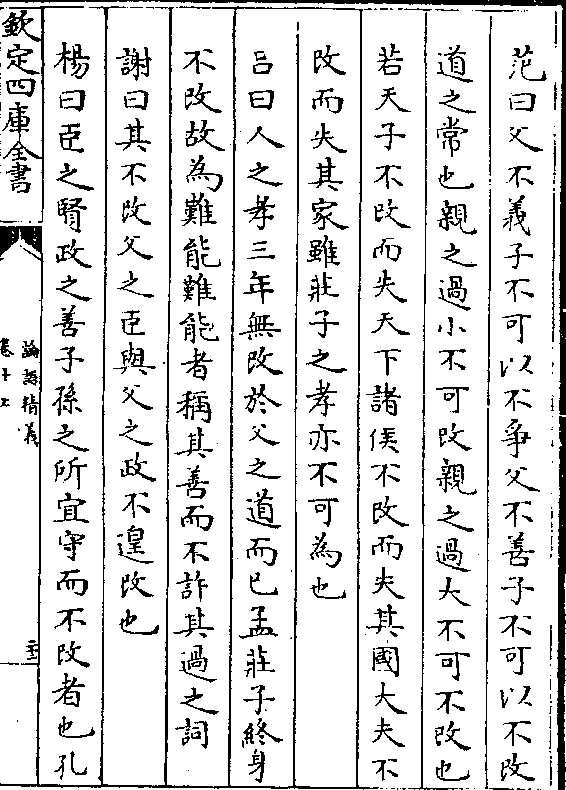 范曰父不義子不可以不爭父不善子不可以不改
道之常也親之過小不可改親之過大不可不改也
若天子不改而失天下諸侯不改而失其國大夫不
改而失其家雖莊子之孝亦不可為也
吕曰人之孝三年無改於父之道而已孟莊子終身
不改故為難能難能者稱其善而不詐其過之詞
謝曰其不改父之臣與父之政不遑改也
楊曰臣之賢政之善子孫之所宜守而不改者也孔
欽定四庫全書
論語精義
卷十上